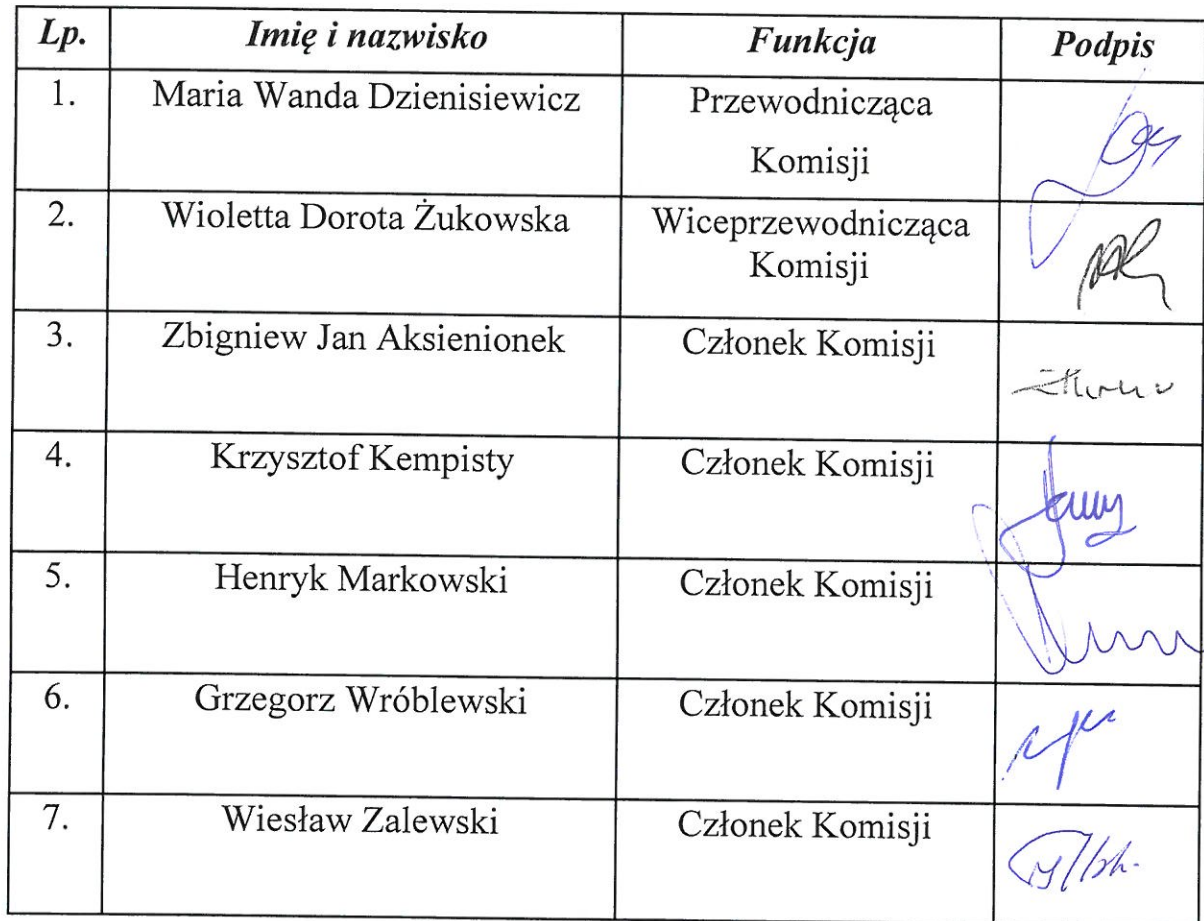 Lp. Imię i nazwisko Funkcja Podpis
1. Maria Wanda Dzienisiewicz Przewodnicząca
Komisji
2. Wioletta Dorota Żukowska Wiceprzewodnicząca
Komisji
3. Zbigniew Jan Aksienionek Członek Komisji
4. Krzysztof Kempisty Członek Komisji
5. Henryk Markowski Członek Komisji
6. Grzegorz Wróblewski Członek Komisji
7. Wiesław Zalewski Członek Komisji